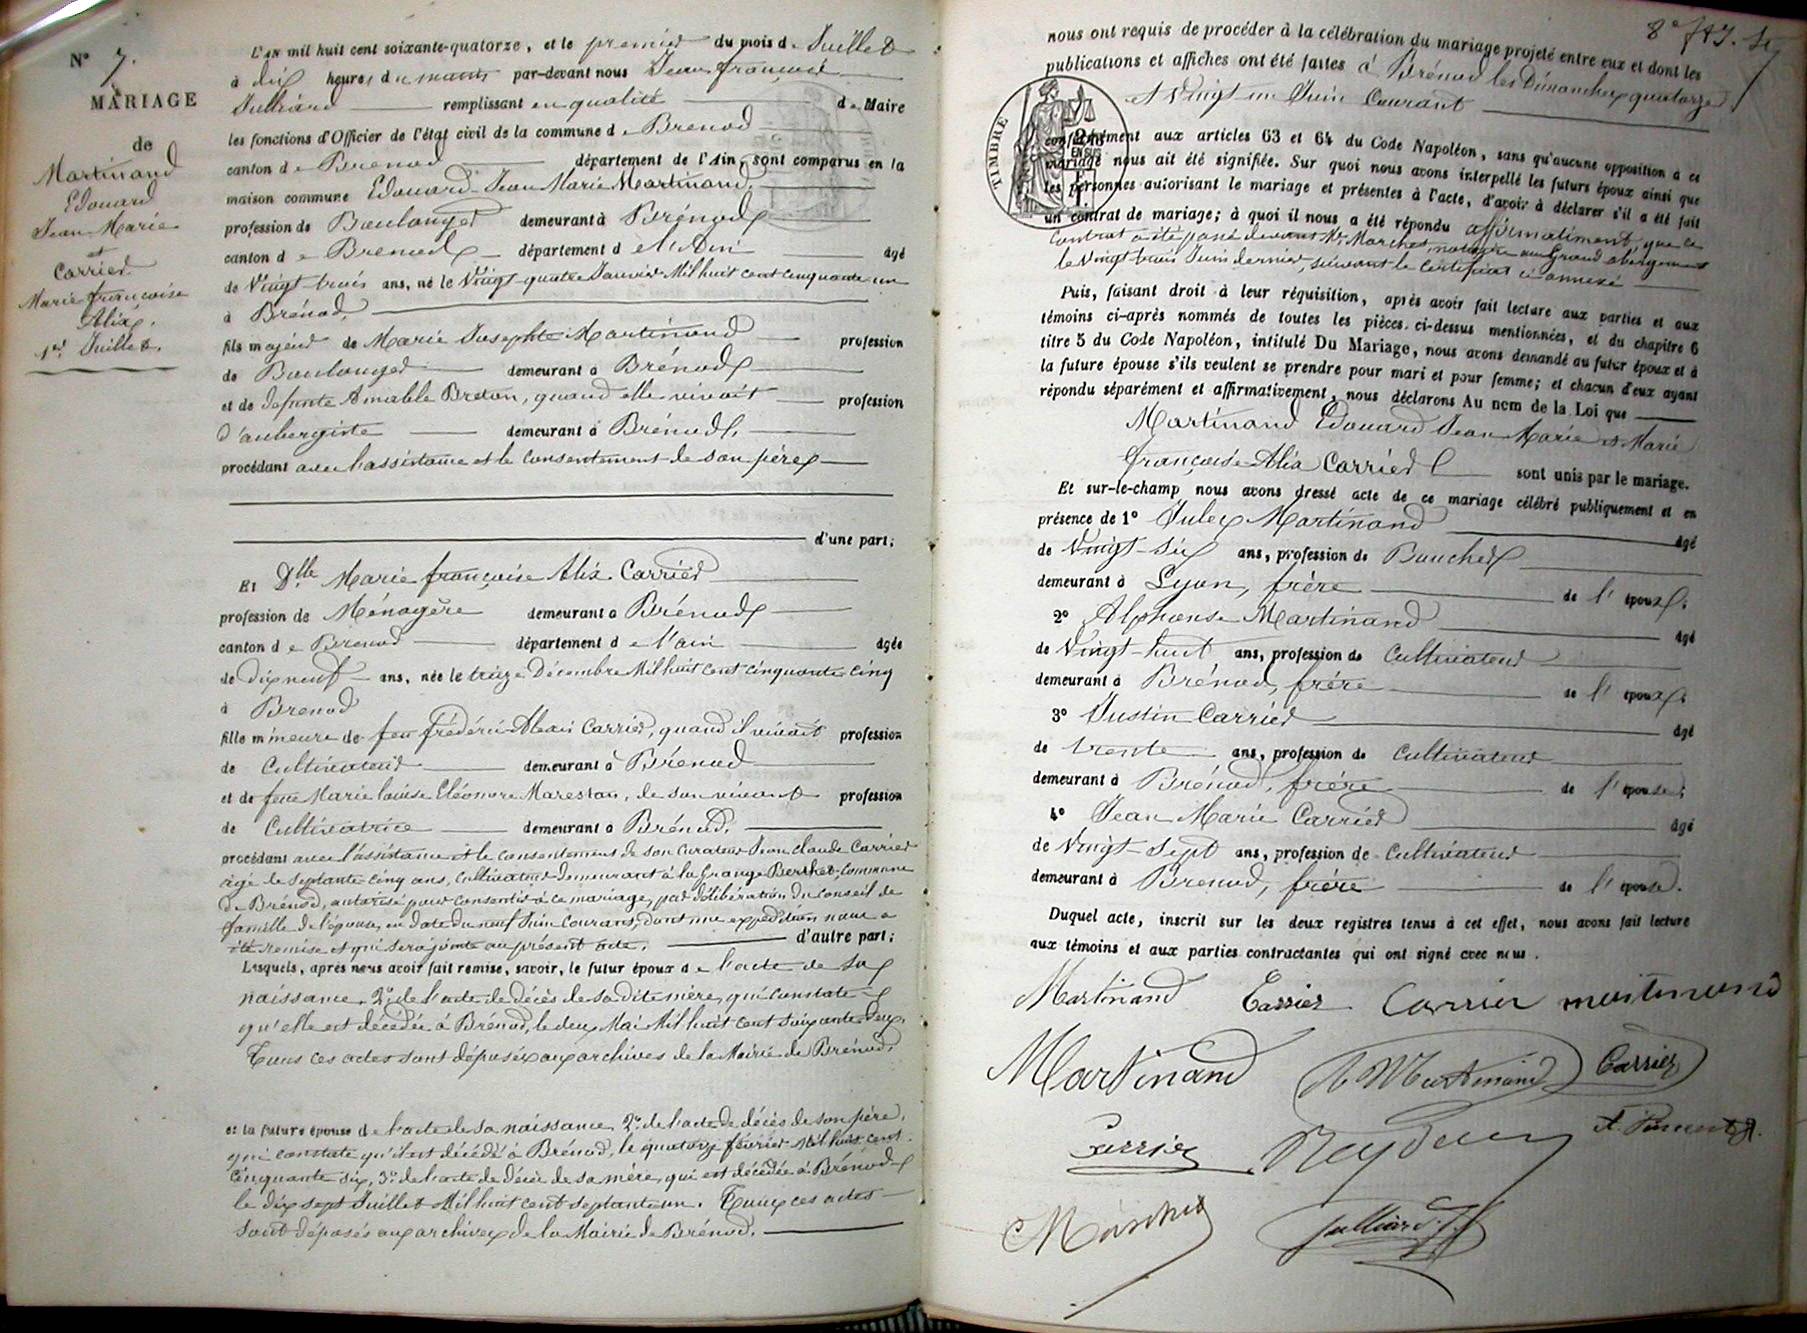 N° 7.
MARIAGE
de
Martinand
Edouard
Jean Marie
et
Carrier
Marie françoise
Alix.
1er Juillet.
L'AN mil huit cent soixante-quatorze, et le premier du mois de Juillet
à dix heures du matin par-devant nous Jean françois
Julliard remplissant en qualité de Maire
les fonctions d'Officier de l'état civil de la commune de Brenod
canton de Brenod département de l'Ain, sont comparus en la
maison commune Edouard Jean Marie Martinand,
profession de Boulanger demeurant à Brénod
canton de Brenod département de l'Ain âgé
de Vingt-trois ans, né le Vingt-quatre Janvier Mil huit cent cinquante un
à Brénod,
fils majeur de Marie Josephte Martinand profession
de Boulanger demeurant à Brénod
et de defunte Aimable Breton, quand elle vivait profession
d'aubergiste demeurant à Brénod,
procédant avec l'assistance et le consentement de son père
d'une part;
Et Dlle Marie françoise Alix Carrier
profession de Ménagère demeurant à Brénod
canton de Brenod département de l'ain âgée
de dix neuf ans, née le treize Décembre Mil huit cent cinquante cinq
à Brenod
fille mineure de feu frédéric Alexis Carrier, quand il vivait profession
de Cultivateur demeurant à Brénod
et de feue Marie louise Eléonore Marestan, de son vivant profession
de Cultivatrice demeurant à Brénod,
procédant avec l'assistance et le consentement de son curateur Jean claude Carrier
âgé de Septante cinq ans, cultivateur demeurant à la Grange Berthet, commune
de Brénod, autorisé pour consentir à ce mariage, par délibération du conseil de
famille de l'épouse, en date du neuf Juin courant, dont une expédition nous a
été remise et qui sera jointe au présent acte, d'autre part;
Lesquels, après nous avoir fait remise, savoir, le futur époux de l'acte de sa
naissance, 2° de l'acte de décès de sa dite mère, qui constate
qu'elle est décédée à Brénod, le deux Mai Mil huit cent soixante deux,
Tous ces actes sont déposés aux archives de la Mairie de Brénod,
et la future épouse de l'acte de sa naissance, 2° de l'acte de décès de son père,
qui constate qu'il est décédé à Brénod, le quatorze février Mil huit cent
Cinquante six, 3° de l'acte de décès de sa mère, qui est décédée à Brénod
le dix sept Juillet Mil huit cent septante un. Tous ces actes
sont déposés aux archives de la Mairie de Brénod.
nous ont requis de procéder à la célébration du mariage projeté entre eux et dont les
publications et affiches ont été faites à Brénod les Dimanches quatorze
et Vingt un Juin Courant
TIMBRE
conformément aux articles 63 et 64 du Code Napoléon, sans qu'aucune opposition à ce
mariage nous ait été signifiée. Sur quoi nous avons interpellé les futurs époux ainsi que
les personnes autorisant le mariage et présentes à l'acte, d'avoir à déclarer s'il a été fait
un contrat de mariage; à quoi il nous a été répondu affirmatiment, que le
Contrat a été passé devant Me Marchet, notaire au Grand abergement
le Vingt trois Juin dernier, suivant le certificat ci annexé
Puis, faisant droit à leur réquisition, après avoir fait lecture aux parties et aux
témoins ci-après nommés de toutes les pièces ci-dessus mentionnées, et du chapitre 6
titre 5 du Code Napoléon, intitulé Du Mariage, nous avons demandé au futur époux et à
la future épouse s'ils veulent se prendre pour mari et pour femme; et chacun d'eux ayant
répondu séparément et affirmativement, nous déclarons Au nom de la Loi que
Martinand Edouard Jean Marie et Marie
françoise Alix Carrier sont unis par le mariage.
Et sur-le-champ nous avons dressé acte de ce mariage célébré publiquement et en
présence de 1° Jules Martinand âgé
de Vingt-six ans, profession de Boucher
demeurant à Lyon, frère de l'époux;
2° Alphonse Martinand âgé
de Vingt-huit ans, profession de Cultivateur
demeurant à Brénod, frère de l'époux;
3° Justin Carrier âgé
de trente ans, profession de Cultivateur
demeurant à Brénod, frère de l'épouse;
4° Jean Marie Carrier âgé
de Vingt-sept ans, profession de Cultivateur
demeurant à Brenod, frère de l'épouse.
Duquel acte, inscrit sur les deux registres tenus à cet effet, nous avons fait lecture
aux témoins et aux parties contractantes qui ont signé avec nous.
Martinand Carrier Carrier martinand
Martinand A Martinand Carrier
Carrier
Julliard J. f.